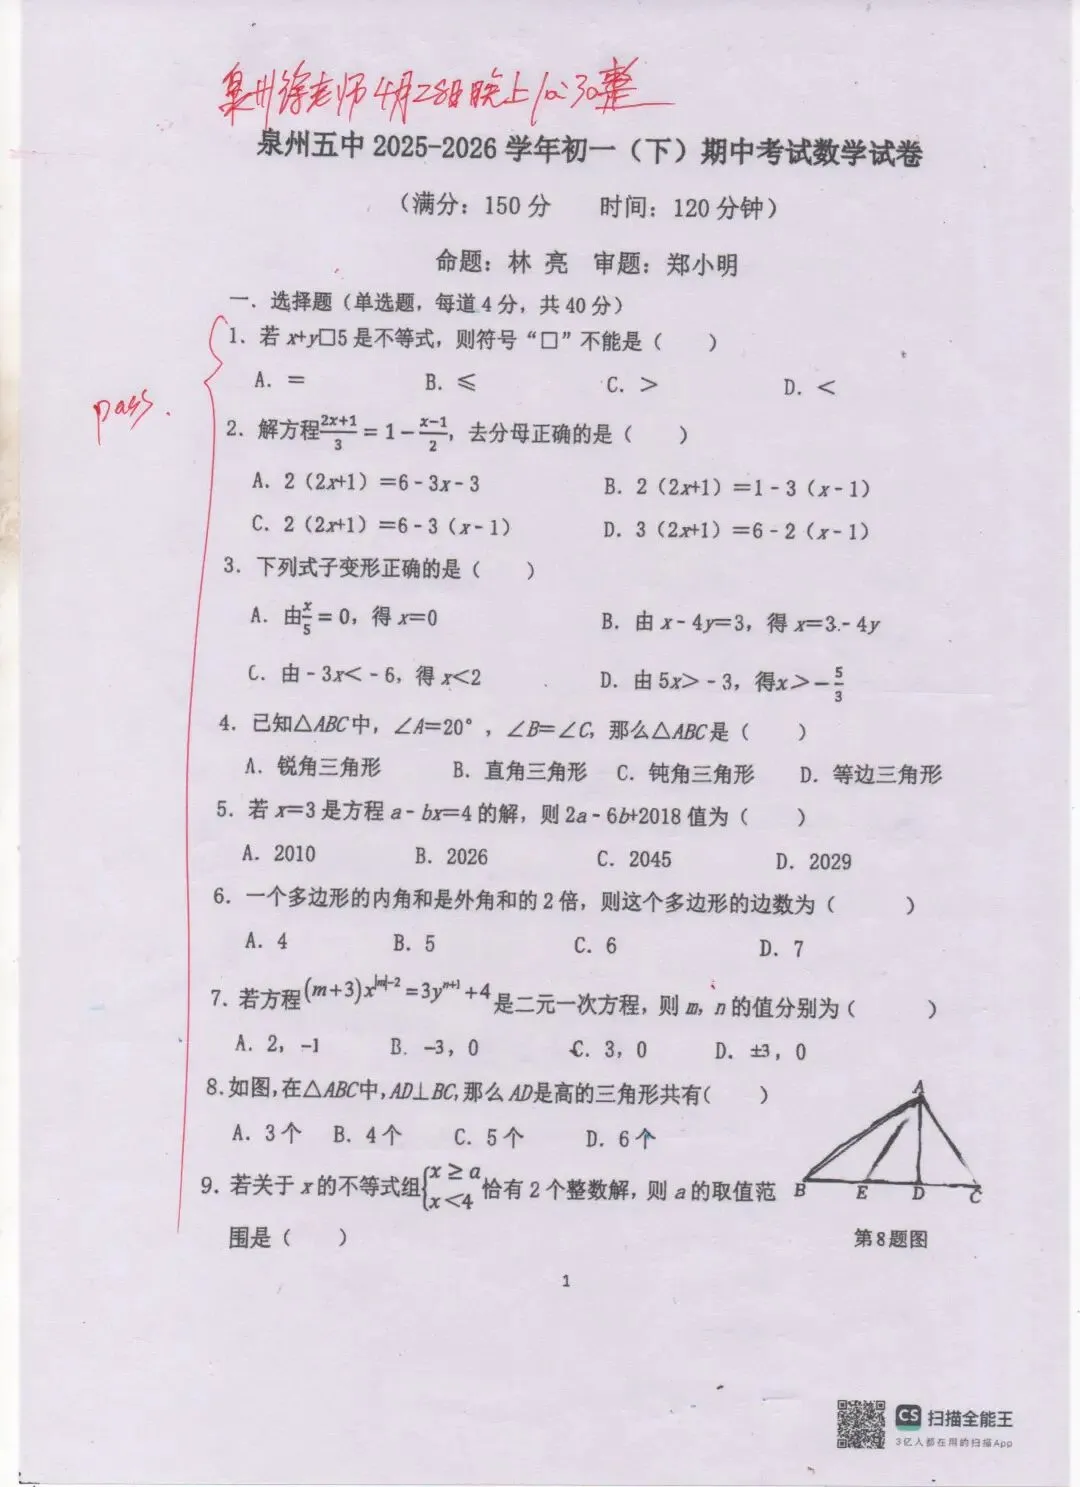 泉州徐老师4月28日晚上10:30整
泉州五中 2025-2026 学年初一（下）期中考试数学试卷
（满分：150 分  时间：120 分钟）
命题：林 亮  审题：郑小明
一．选择题（单选题，每道 4 分，共 40 分）
pass.
1．若 x+y□5 是不等式，则符号“□”不能是（  ）
A．=  B．≤  C．>  D．<
2．解方程 (2x+1)/3 = 1 - (x-1)/2，去分母正确的是（  ）
A．2（2x+1）=6-3x-3  B．2（2x+1）=1-3（x-1）
C．2（2x+1）=6-3（x-1）  D．3（2x+1）=6-2（x-1）
3．下列式子变形正确的是（  ）
A．由 x/5 = 0，得 x=0  B．由 x-4y=3，得 x=3-4y
C．由 -3x<-6，得 x<2  D．由 5x>-3，得 x>-5/3
4．已知△ABC 中，∠A=20°，∠B=∠C，那么△ABC 是（  ）
A．锐角三角形  B．直角三角形  C．钝角三角形  D．等边三角形
5．若 x=3 是方程 a-bx=4 的解，则 2a-6b+2018 值为（  ）
A．2010  B．2026  C．2045  D．2029
6．一个多边形的内角和是外角和的 2 倍，则这个多边形的边数为（  ）
A．4  B．5  C．6  D．7
7．若方程 (m+3)x^{|m|-2} = 3y^{n+1} + 4 是二元一次方程，则 m，n 的值分别为（  ）
A．2，-1  B．-3，0  C．3，0  D．±3，0
8.如图,在△ABC中,AD⊥BC,那么 AD是高的三角形共有(  )
A．3 个  B．4 个  C．5 个  D．6 个
A
B E D C
第 8 题图
9．若关于 x 的不等式组{x≥a
x<4 恰有 2 个整数解，则 a 的取值范
围是（  ）
1
CS 扫描全能王
3亿人都在用的扫描App